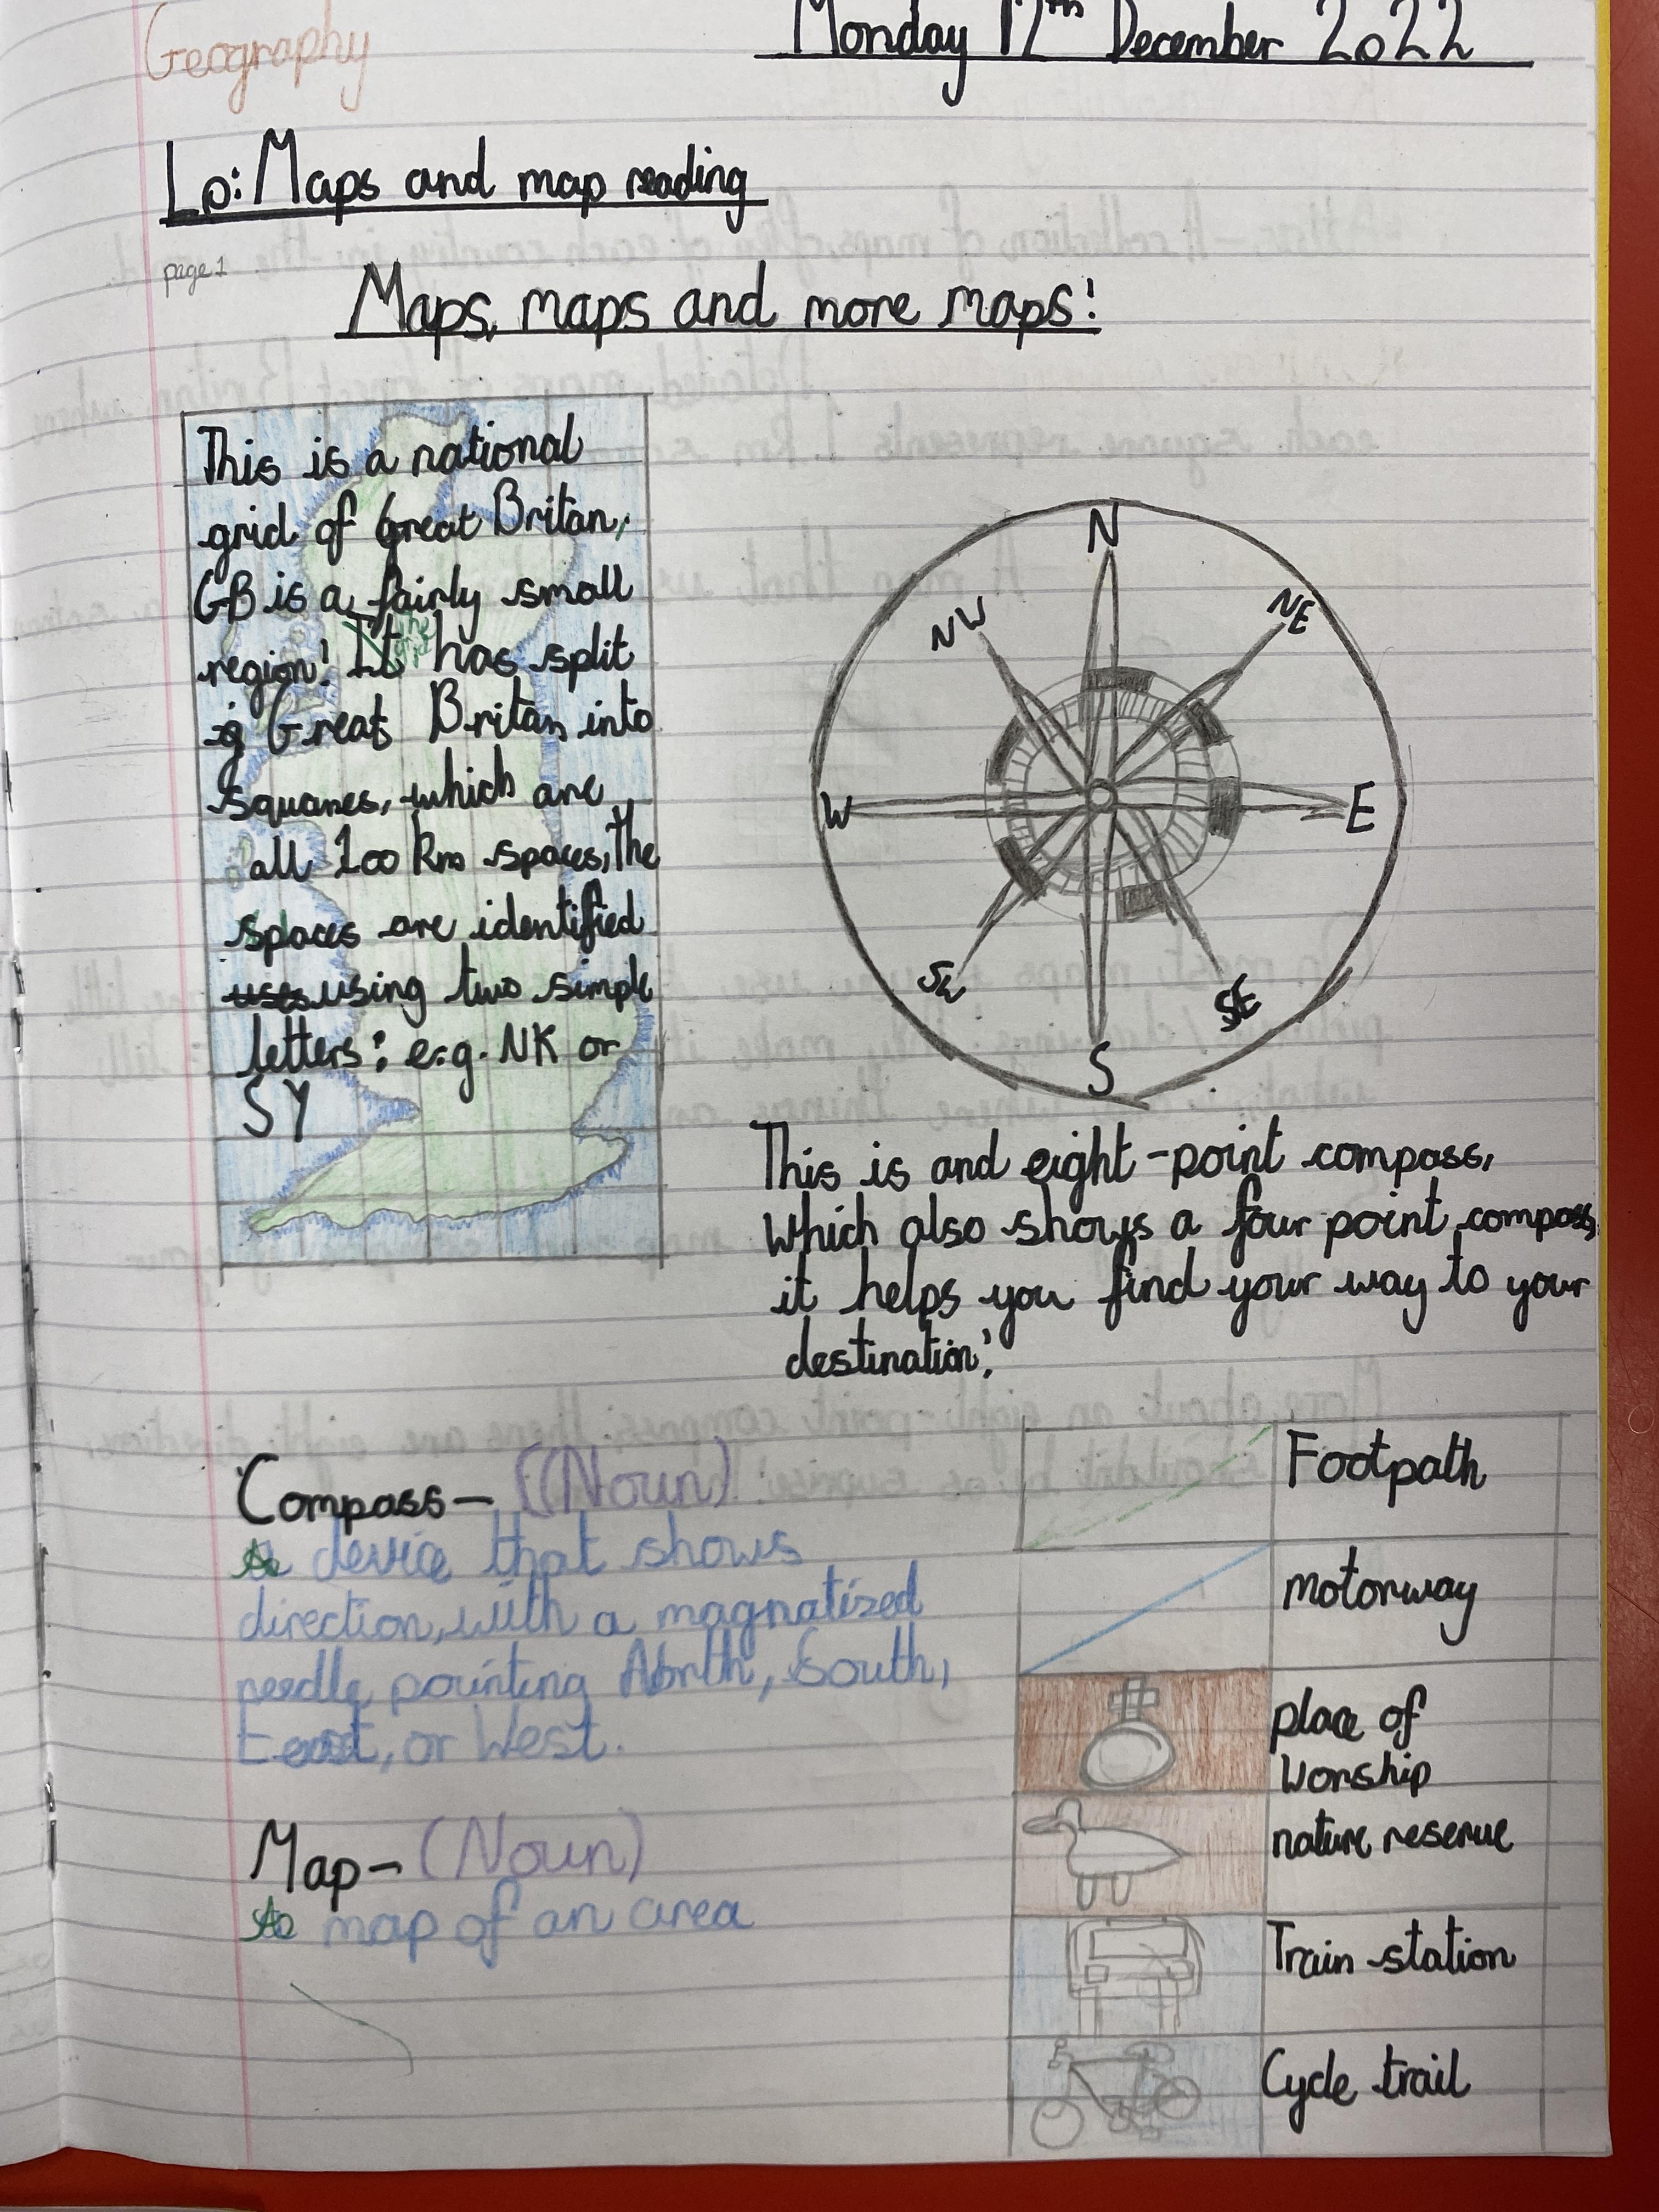 Geography
Monday 12th December 2022
Lo: Maps and map reading
page 1
Maps, maps and more maps!
This is a national
grid of Great Britan,
GB is a fairly small
region! It has split
the grid
Great Britan into
squares, which are
all 100 km spaces, the
spaces are identified
uses using two simple
letters: e.g. NK or
SY
N
NE
E
SE
S
SW
W
NW
This is and eight-point compass,
which also shows a four point compass,
it helps you find your way to your
destination!
Compass- (Noun)
A device that shows
direction, with a magnatized
needle pointing North, South,
East, or West.
Map- (Noun)
A map of an area
Footpath
motorway
place of
worship
nature reserve
Train station
Cycle trail